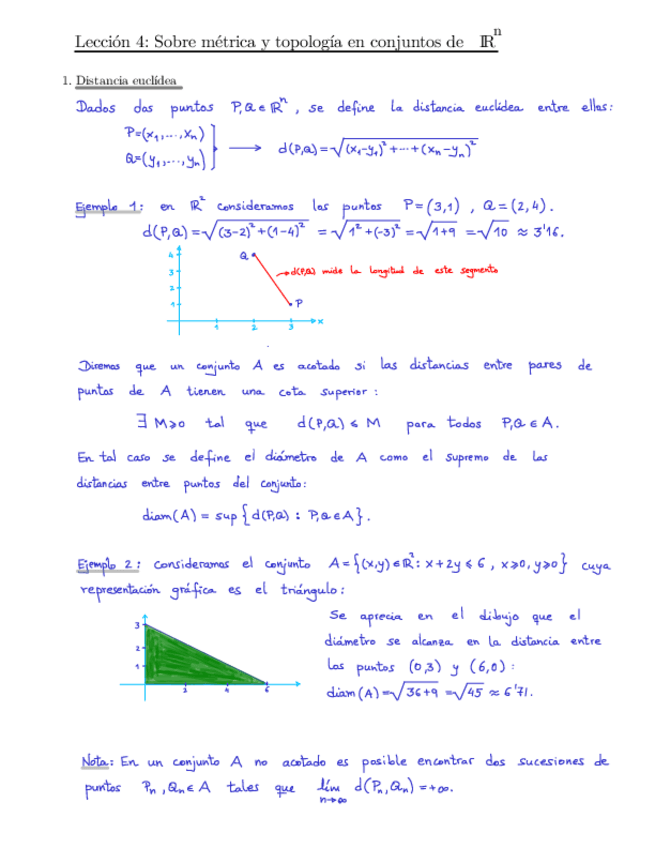 Lección 4: Sobre métrica y topología en conjuntos de ℝⁿ
1. Distancia euclídea
Dados dos puntos P,Q ∈ ℝⁿ, se define la distancia euclídea entre ellos:
P=(x₁,...,xₙ)
Q=(y₁,...,yₙ)
⟶ d(P,Q)=√((x₁-y₁)²+...+(xₙ-yₙ)²)
Ejemplo 1: en ℝ² consideramos los puntos P=(3,1), Q=(2,4).
d(P,Q)=√((3-2)²+(1-4)²) = √(1²+(-3)²) = √(1+9) = √10 ≈ 3'16.
4
3
2
1
Q
→ d(P,Q) mide la longitud de este segmento
P
1 2 3 x
Diremos que un conjunto A es acotado si las distancias entre pares de
puntos de A tienen una cota superior:
∃ M≥0 tal que d(P,Q) ≤ M para todos P,Q ∈ A.
En tal caso se define el diámetro de A como el supremo de las
distancias entre puntos del conjunto:
diam(A) = sup {d(P,Q) : P,Q ∈ A}.
Ejemplo 2: consideramos el conjunto A={(x,y) ∈ ℝ²: x+2y ≤ 6, x≥0, y≥0} cuya
representación gráfica es el triángulo:
3
2
1
2 4 6
Se aprecia en el dibujo que el
diámetro se alcanza en la distancia entre
los puntos (0,3) y (6,0):
diam(A)=√(36+9) = √45 ≈ 6'71.
Nota: En un conjunto A no acotado es posible encontrar dos sucesiones de
puntos Pₙ, Qₙ ∈ A tales que lím d(Pₙ,Qₙ)=+∞.
n→∞